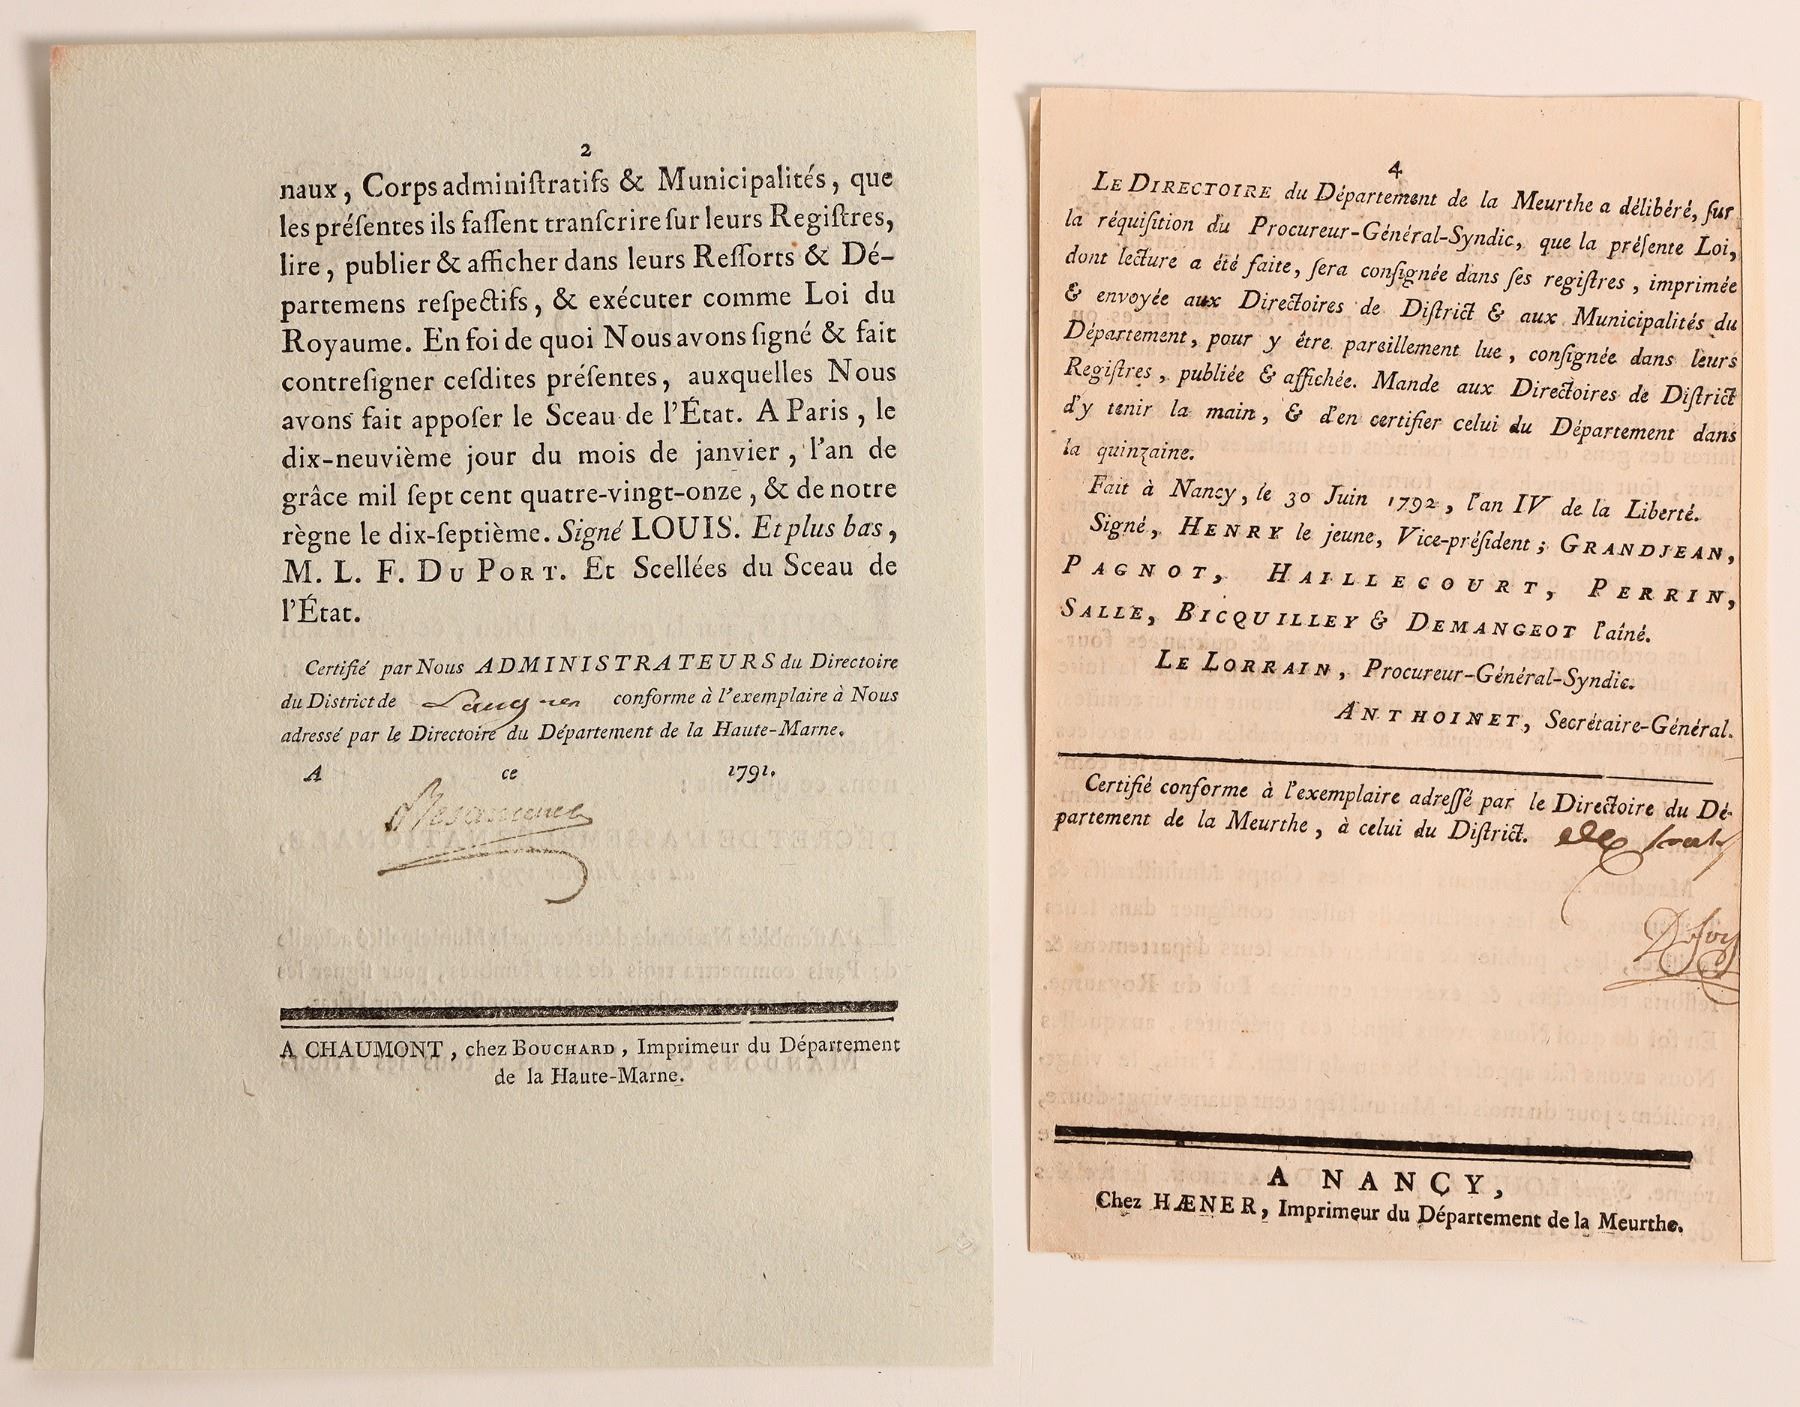 2
naux, Corps adminiſtratifs & Municipalités, que
les préſentes ils faſſent tranſcrire ſur leurs Regiſtres,
lire, publier & afficher dans leurs Reſſorts & Dé-
partemens reſpectifs, & exécuter comme Loi du
Royaume. En foi de quoi Nous avons ſigné & fait
contreſigner ceſdites préſentes, auxquelles Nous
avons fait appoſer le Sceau de l'État. A Paris, le
dix-neuvième jour du mois de janvier, l'an de
grâce mil ſept cent quatre-vingt-onze, & de notre
règne le dix-ſeptième. Signé LOUIS. Et plus bas,
M. L. F. DU PORT. Et Scellées du Sceau de
l'État.
Certifié par Nous ADMINISTRATEURS du Directoire
du District de Langres conforme à l'exemplaire à Nous
adressé par le Directoire du Département de la Haute-Marne.
A ce 1791.
A CHAUMONT, chez BOUCHARD, Imprimeur du Département
de la Haute-Marne.
4
LE DIRECTOIRE du Département de la Meurthe a délibéré, ſur
la réquiſition du Procureur-Général-Syndic, que la préſente Loi,
dont lecture a été faite, ſera conſignée dans ſes regiſtres, imprimée
& envoyée aux Directoires de Diſtrict & aux Municipalités du
Département, pour y être pareillement lue, conſignée dans leurs
Regiſtres, publiée & affichée. Mande aux Directoires de Diſtrict
d'y tenir la main, & d'en certifier celui du Département dans
la quinzaine.
Fait à Nancy, le 30 Juin 1792, l'an IV de la Liberté.
Signé, HENRY le jeune, Vice-préſident; GRANDJEAN,
PAGNOT, HAILLECOURT, PERRIN,
SALLE, BICQUILLEY & DEMANGEOT l'aîné.
LE LORRAIN, Procureur-Général-Syndic.
ANTHOINET, Secrétaire-Général.
Certifié conforme à l'exemplaire adreſſé par le Directoire du Dé-
partement de la Meurthe, à celui du Diſtrict.
A NANCY,
Chez HÆNER, Imprimeur du Département de la Meurthe.